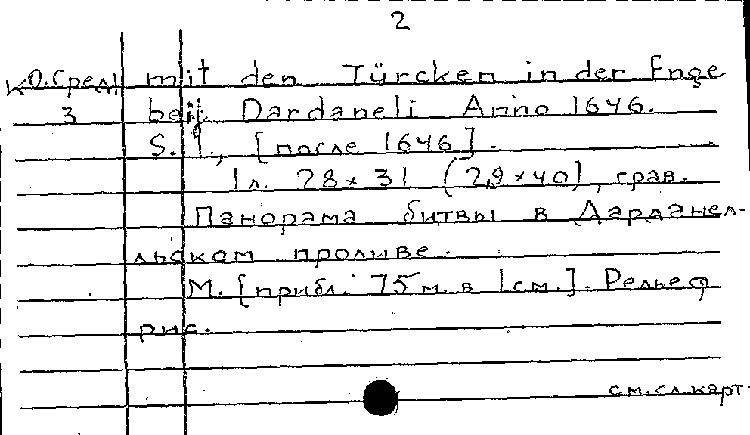 2
КО.Сред mit den Türcken in der Enge
3 beij Dardaneli Anno 1646.
S. l., [после 1646].
1 л. 28 × 31 (29 × 40), грав.
Панорама битвы в Дарданел-
льском проливе.
М. [прибл. 75 м. в 1 см.]. Рельеф
рис.
см. сл. карт.